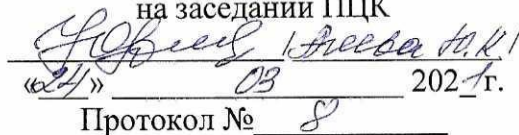 на заседании ПЦК
Ю.К/
«24» 03 2021г.
Протокол № 8